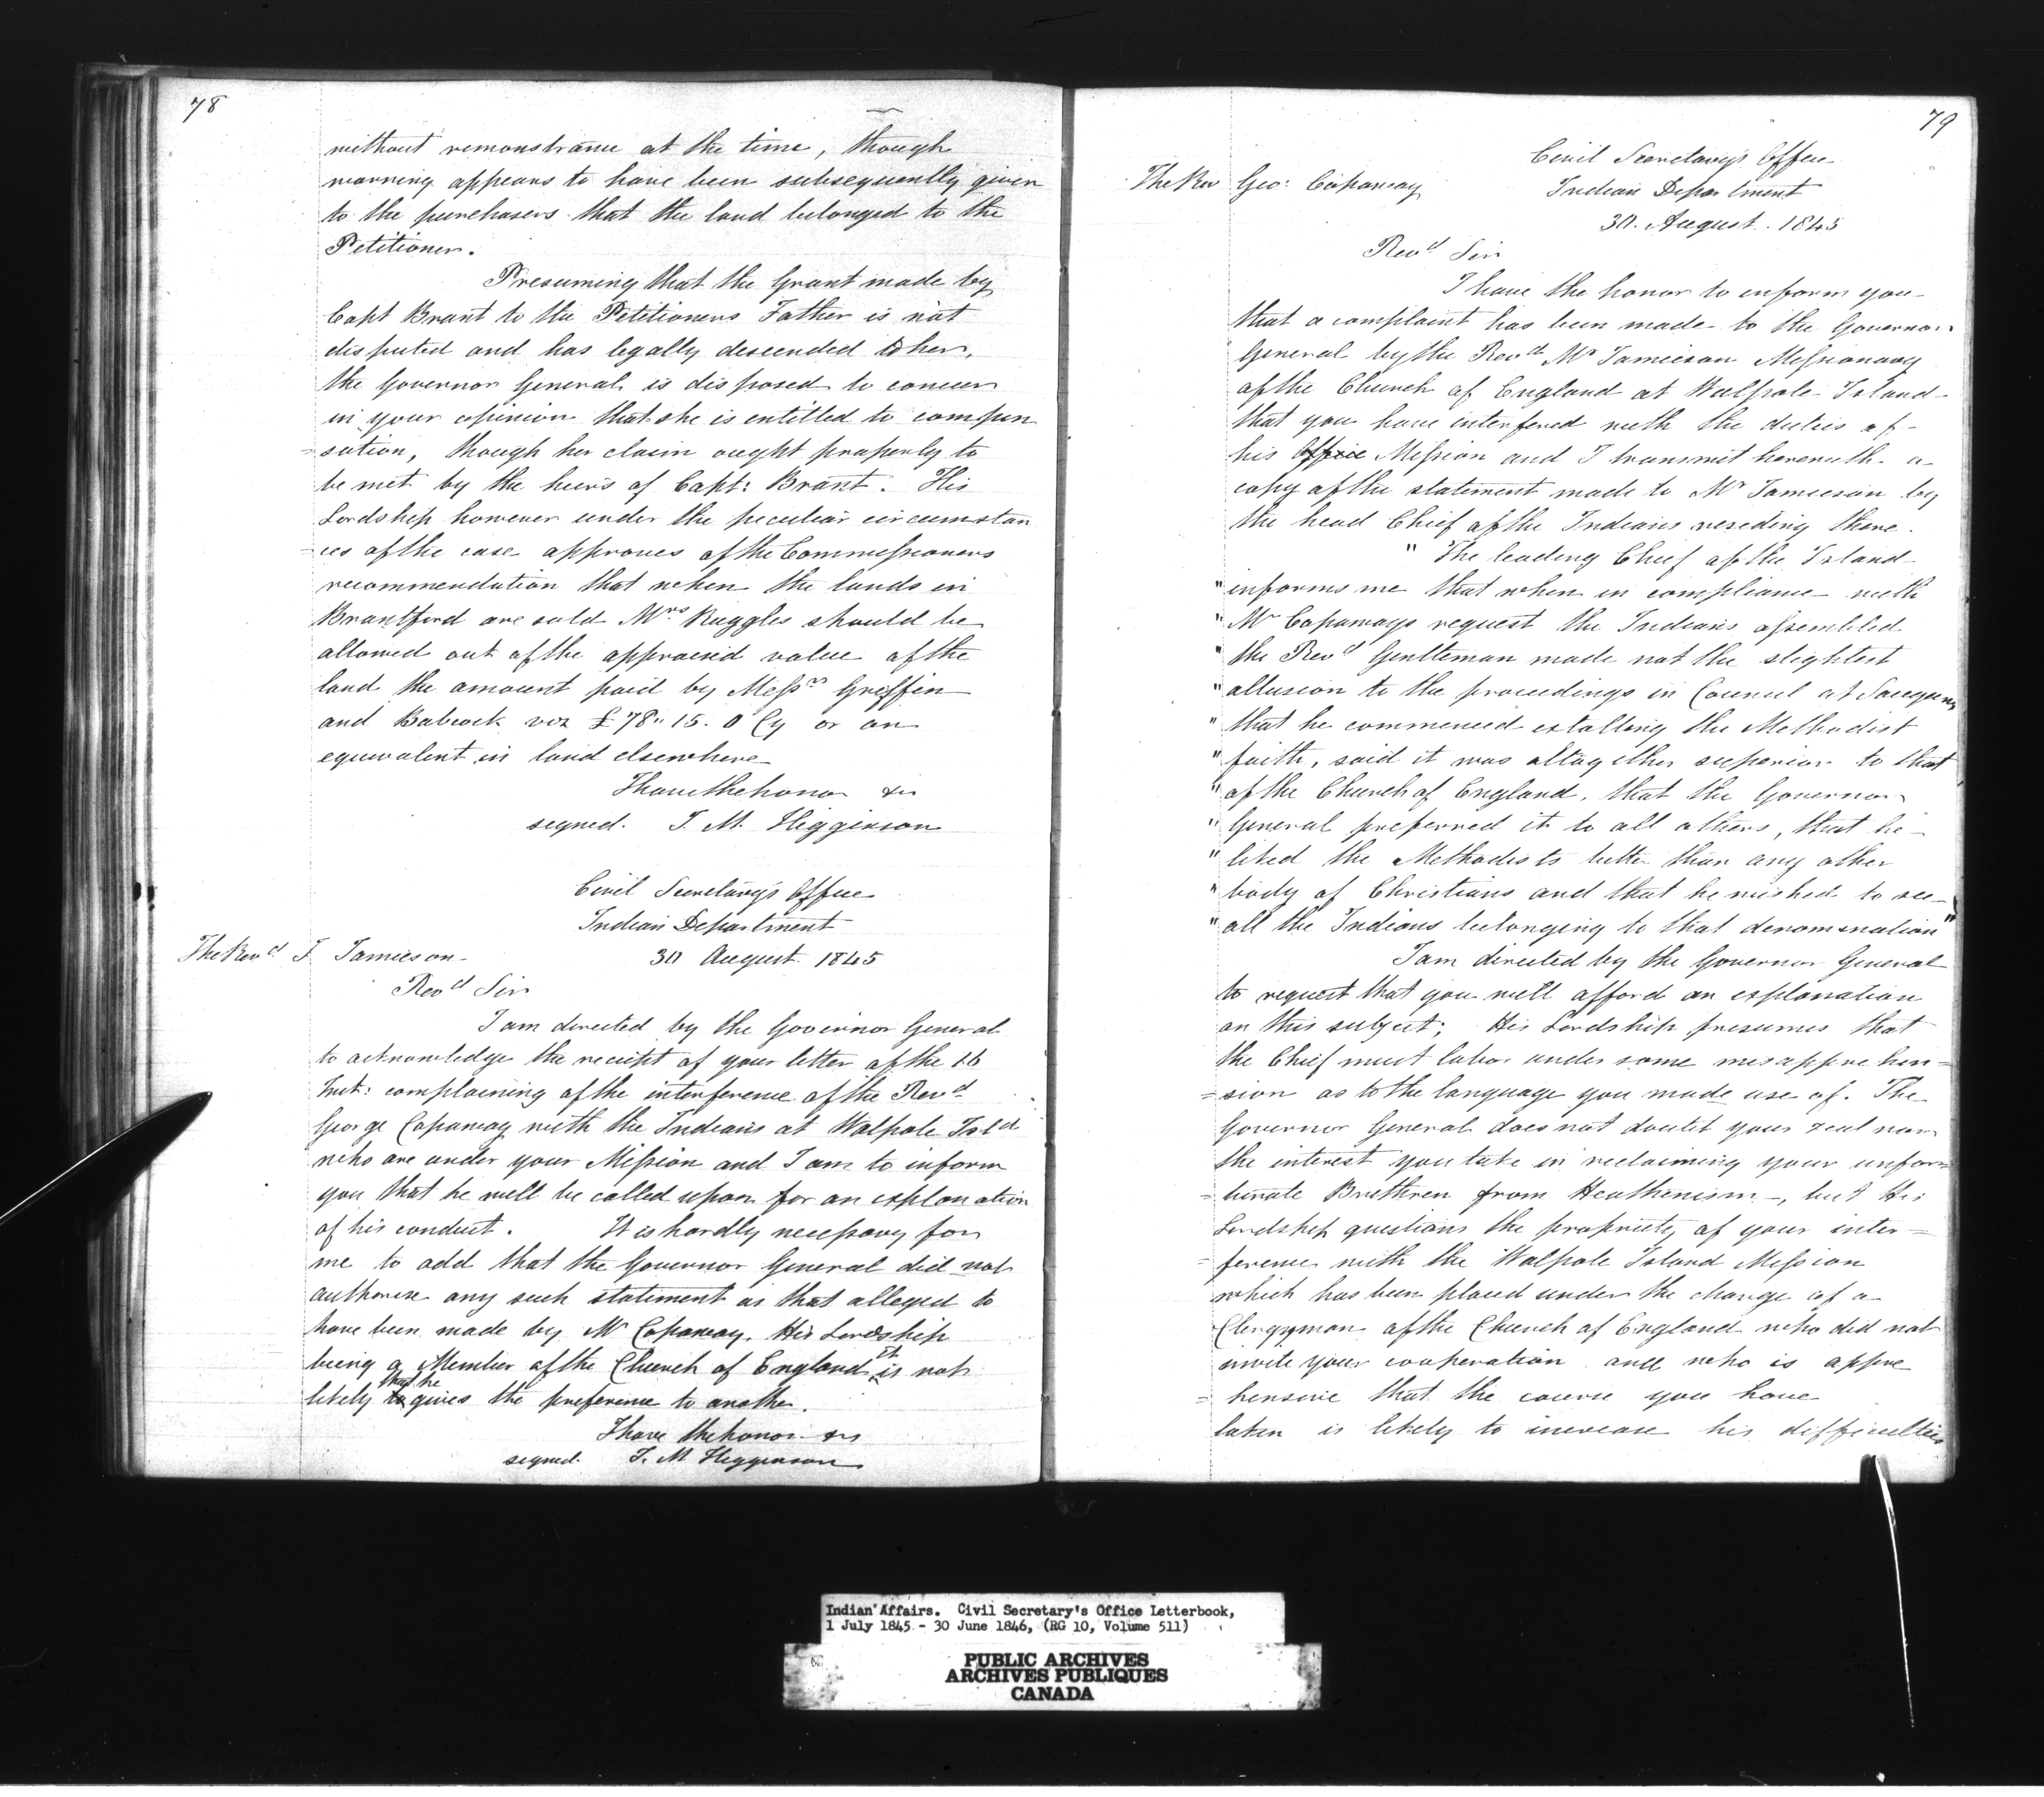 78
without remonstrance at the time, though
warning appears to have been subsequently given
to the purchasers that the land belonged to the
Petitioner.
Presuming that the Grant made by
Capt Brant to the Petitioners Father is not
disputed and has legally descended to her,
the Governor General is disposed to concur
in your opinion that she is entitled to compen
=sation, though her claim ought properly to
be met by the heirs of Capt: Brant. His
Lordship however under the peculiar circumstan
=ces of the case approves of the Commissioners
recommendation that when the lands in
Brantford are sold Mrs Ruggles should be
allowed out of the appraised value of the
land the amount paid by Messrs Griffin
and Babcock viz £78" 15. 0 Cy or an
equivalent in land elsewhere
I have the honor &c
signed. J. M. Higginson
Civil Secretary's Office
Indian Department
The Revd J. Jamieson 30 August 1845
Revd Sir
I am directed by the Governor General
to acknowledge the receipt of your letter of the 16
Inst: complaining of the interference of the Revd
George Copaway with the Indians at Walpole Isld
who are under your Mission and I am to inform
you that he will be called upon for an explanation
of his conduct. It is hardly necessary for
me to add that the Governor General did not
authorize any such statement as that alleged to
have been made by Mr Copaway. His Lordship
being a Member of the Church of England it is not
likely to that he gives the preference to another.
I have the honor &c
signed. J. M Higginson
79
Civil Secretary's Office
The Rev Geo: Copaway Indian Department
30. August. 1845
Revd Sir
I have the honor to inform you
that a complaint has been made to the Governor
General by the Revd Mr Jamieson Missionary
of the Church of England at Walpole Island
that you have interfered with the duties of
his Office Mission and I transmit herewith a
copy of the statement made to Mr Jamieson by
the head Chief of the Indians residing there.
" The leading Chief of the Island
" informs me that when in compliance with
" Mr Copaways request the Indians assembled
" the Revd Gentleman made not the slightest
" allusion to the proceedings in Council at Saugeeng
" that he commenced extolling the Methodist
" faith, said it was altogether superior to that
" of the Church of England, that the Governor
" General preferred it to all others, that he
" liked the Methodists better than any other
" body of Christians and that he wished to see
" all the Indians belonging to that denomination"
I am directed by the Governor General
to request that you will afford an explanation
on this subject; His Lordship presumes that
the Chief must labor under some misapprehen=
=sion as to the language you made use of. The
Governor General does not doubt your zeal nor
the interest you take in reclaiming your unfor=
=tunate Brethren from Heathenism, but His
Lordship questions the propriety of your inter=
=ference with the Walpole Island Mission
which has been placed under the charge of a
Clergyman of the Church of England who did not
invite your cooperation and who is appre
=hensive that the course you have
taken is likely to increase his difficulties
Indian Affairs. Civil Secretary's Office Letterbook,
1 July 1845 - 30 June 1846, (RG 10, Volume 511)
PUBLIC ARCHIVES
ARCHIVES PUBLIQUES
CANADA